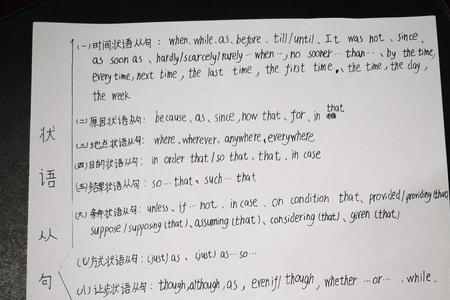 状语从句
(一)时间状语从句: when. while. as. before. till/until、It was not 、since、
as soon as 、hardly/scarcely/rarely …when…, no sooner… than…、by the time,
every time, next time , the last time , the first time、, the time, the day,
the week
(二)原因状语从句: because、as、since, now that、for、in that
(三)地点状语从句: where、wherever、anywhere、everywhere
(四)目的状语从句: in order that / so that、that、in case
(五)结果状语从句: so…that、such…that
(六)条件状语从句: unless、if…not、in case、on condition that、provided/providing (that)
suppose/supposing (that)、assuming (that)、considering (that)、given (that)
(七)方式状语从句: (just) as 、(just) as…so…
(八)让步状语从句: though, although, as , even if / though, whether …or… 、while.